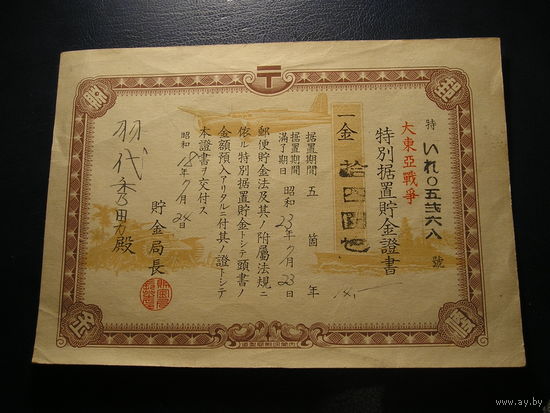 特 いれ〇五弐六八 號
大東亞戰爭
特別据置貯金證書
一金 拾四円也
据置期間 五箇年
据置期間滿了期日 昭和23年7月23日
郵便貯金法及其ノ附屬法規ニ
依ル特別据置貯金トシテ頭書ノ
金額預入アリタルニ付其ノ證トシテ
本證書ヲ交付ス
昭和18年7月24日
貯金局長
殿
www.ay.by